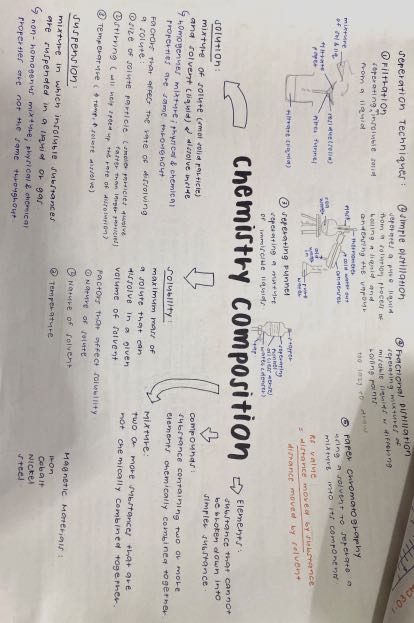 Seperation Techniques:
① Filtration
seperating insoluble solid
from a liquid
mixture
of solids
filter
paper
residue (solid)
filter funnel
filtrate (liquid)
② Simple distillation
seperates a pure liquid
from a solution process of
boiling a liquid and
condensing the vapour
thermometer
condenser
pure
water
③ Seperating funnel
seperating a mixture
of immiscible liquids
seperating
funnel
tap
④ Fractional distillation
seperating mixtures of
miscible liquids w differing
boiling points
⑤ Paper chromatography
using a solvent to seperate a
mixture into its components
Rf value
= distance moved by substance
distance moved by solvent
chemistry composition
Solution:
mixture of solute (small solid particles)
and solvent (liquid) & dissolve inside
↳ homogenous mixture, physical & chemical
properties are same throughout
Factors that affect the rate of dissolving
a solute
① Size of solute particle (smaller particles dissolve
faster than larger particles)
② Stirring (will help speed up the rate of dissolution)
③ Temperature (↑ temp, ↑ solute dissolve)
Suspension:
mixture in which insoluble substances
are suspended in a liquid or gas
↳ non-homogenous mixture, physical & chemical
properties are not the same throughout
Solubility:
maximum mass of
a solute that can
dissolve in a given
volume of solvent
Factors that affect solubility
① Nature of solute
② Nature of solvent
③ Temperature
Elements:
substance that cannot
be broken down into
simpler substance
Compounds:
substance containing two or more
elements chemically combined together
Mixture:
two or more substances that are
not chemically combined together
Magnetic Materials:
Iron
Cobalt
Nickel
Steel